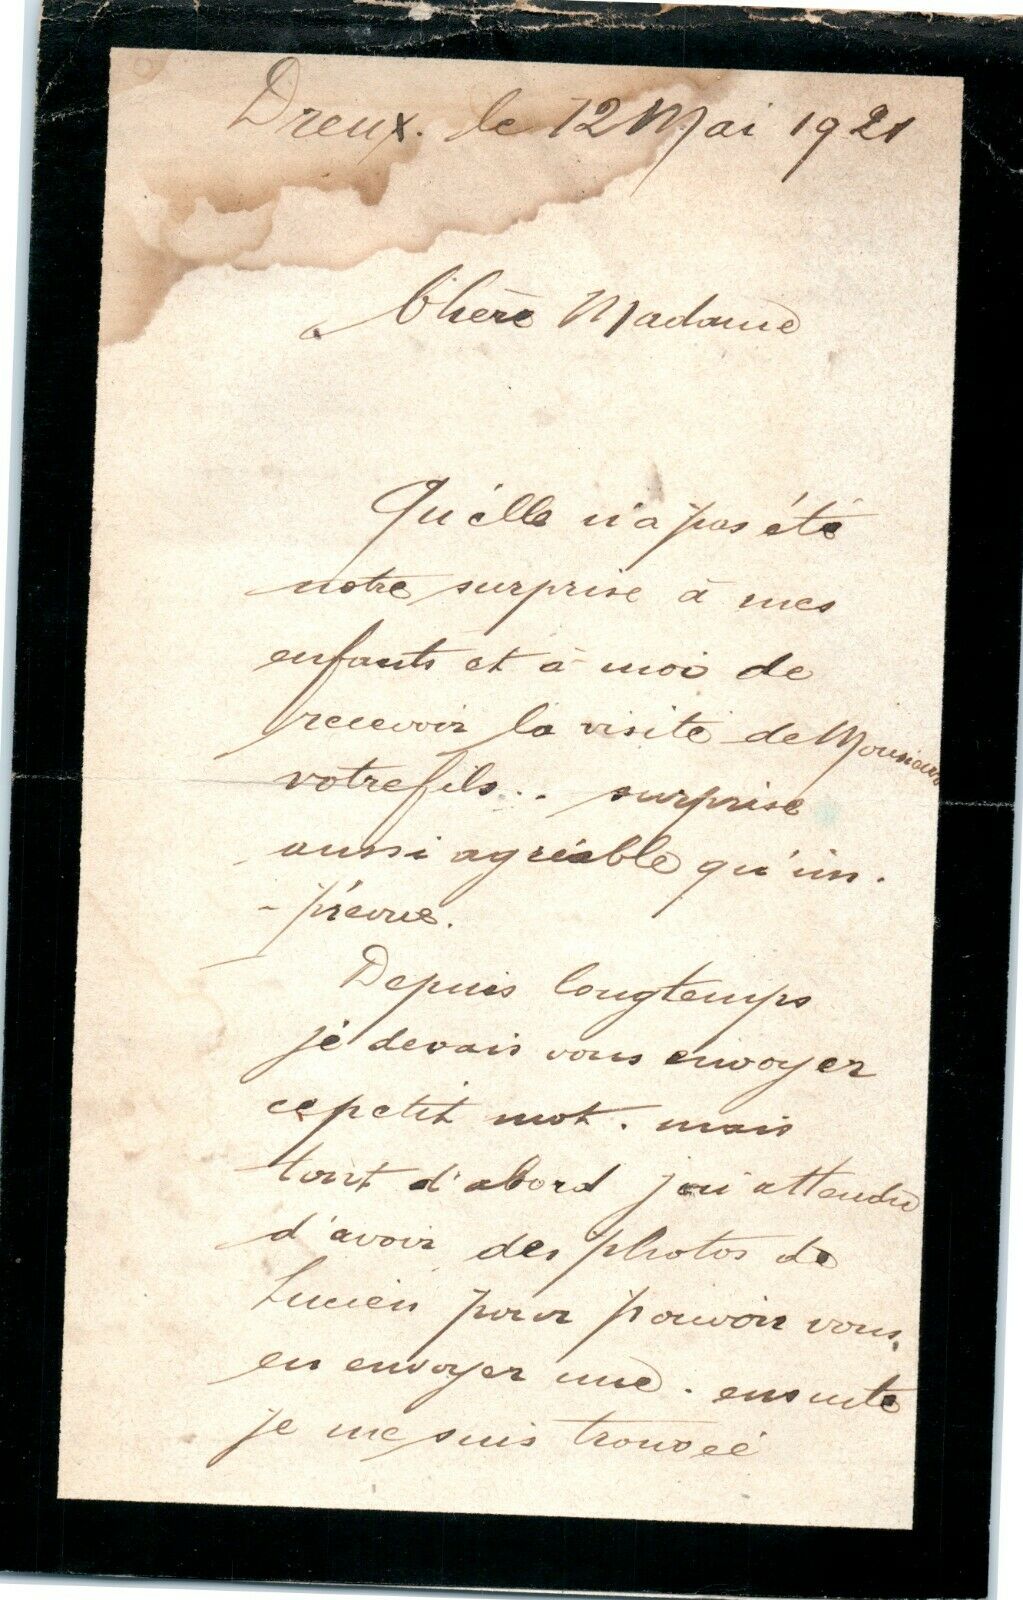 Dreux. le 12 Mai 1921
Chère Madame
Qu'elle n'a pas été
notre surprise à mes
enfants et à moi de
recevoir la visite de Monsieur
votre fils.. surprise
aussi agréable qu'im.
- prévue.
Depuis longtemps
je devais vous envoyer
ce petit mot. mais
tout d'abord j'ai attendu
d'avoir des photos de
Lucien pour pouvoir vous
en envoyer une. ensuite
je me suis trouvée